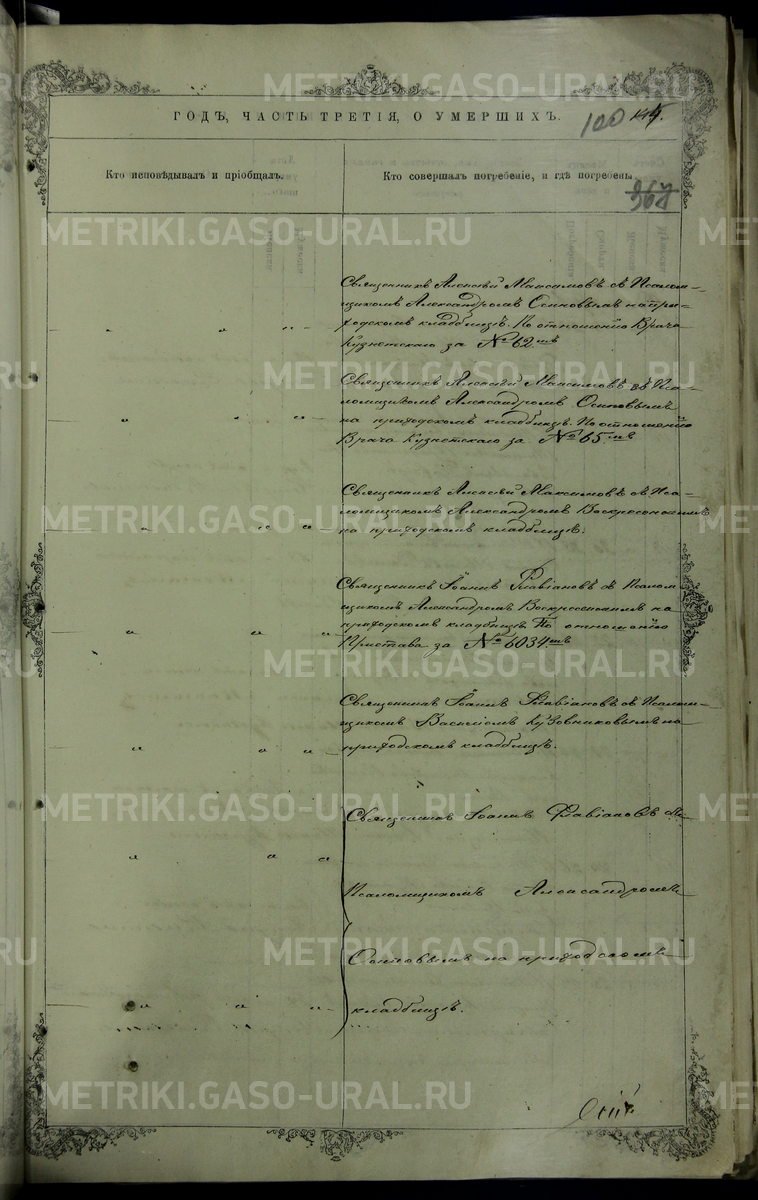 METRIKI.GASO-URAL.RU
ГОДЪ, ЧАСТЬ ТРЕТІЯ, О УМЕРШИХЪ.
100
Кто исповѣдывалъ и пріобщалъ.
Кто совершалъ погребеніе, и гдѣ погребены.
367
Священникъ Алексѣй Максимовъ съ Псалом-
щикомъ Александромъ Осиновымъ на при-
ходскомъ кладбищѣ. По отношенію Врача
Кузнетскаго за № 62.мъ
Священникъ Алексѣй Максимовъ съ Пса-
ломщикомъ Александромъ Осиновымъ
на приходскомъ кладбищѣ. По отношенію
Врача Кузнетскаго за № 65.мъ
Священникъ Алексѣй Максимовъ съ Пса-
ломщикомъ Александромъ Воскресенскимъ
на приходскомъ кладбищѣ.
Священникъ Іоаннъ Флавіановъ съ Псалом
щикомъ Александромъ Воскресенскимъ на
приходскомъ кладбищѣ. По отношенію
Пристава за № 6034.мъ
Священникъ Іоаннъ Флавіановъ съ Псалом-
щикомъ Василіемъ Кузовниковымъ на
приходскомъ кладбищѣ.
Священникъ Іоаннъ Флавіановъ съ
Псаломщикомъ Александромъ
Осиновымъ на приходскомъ
кладбищѣ.